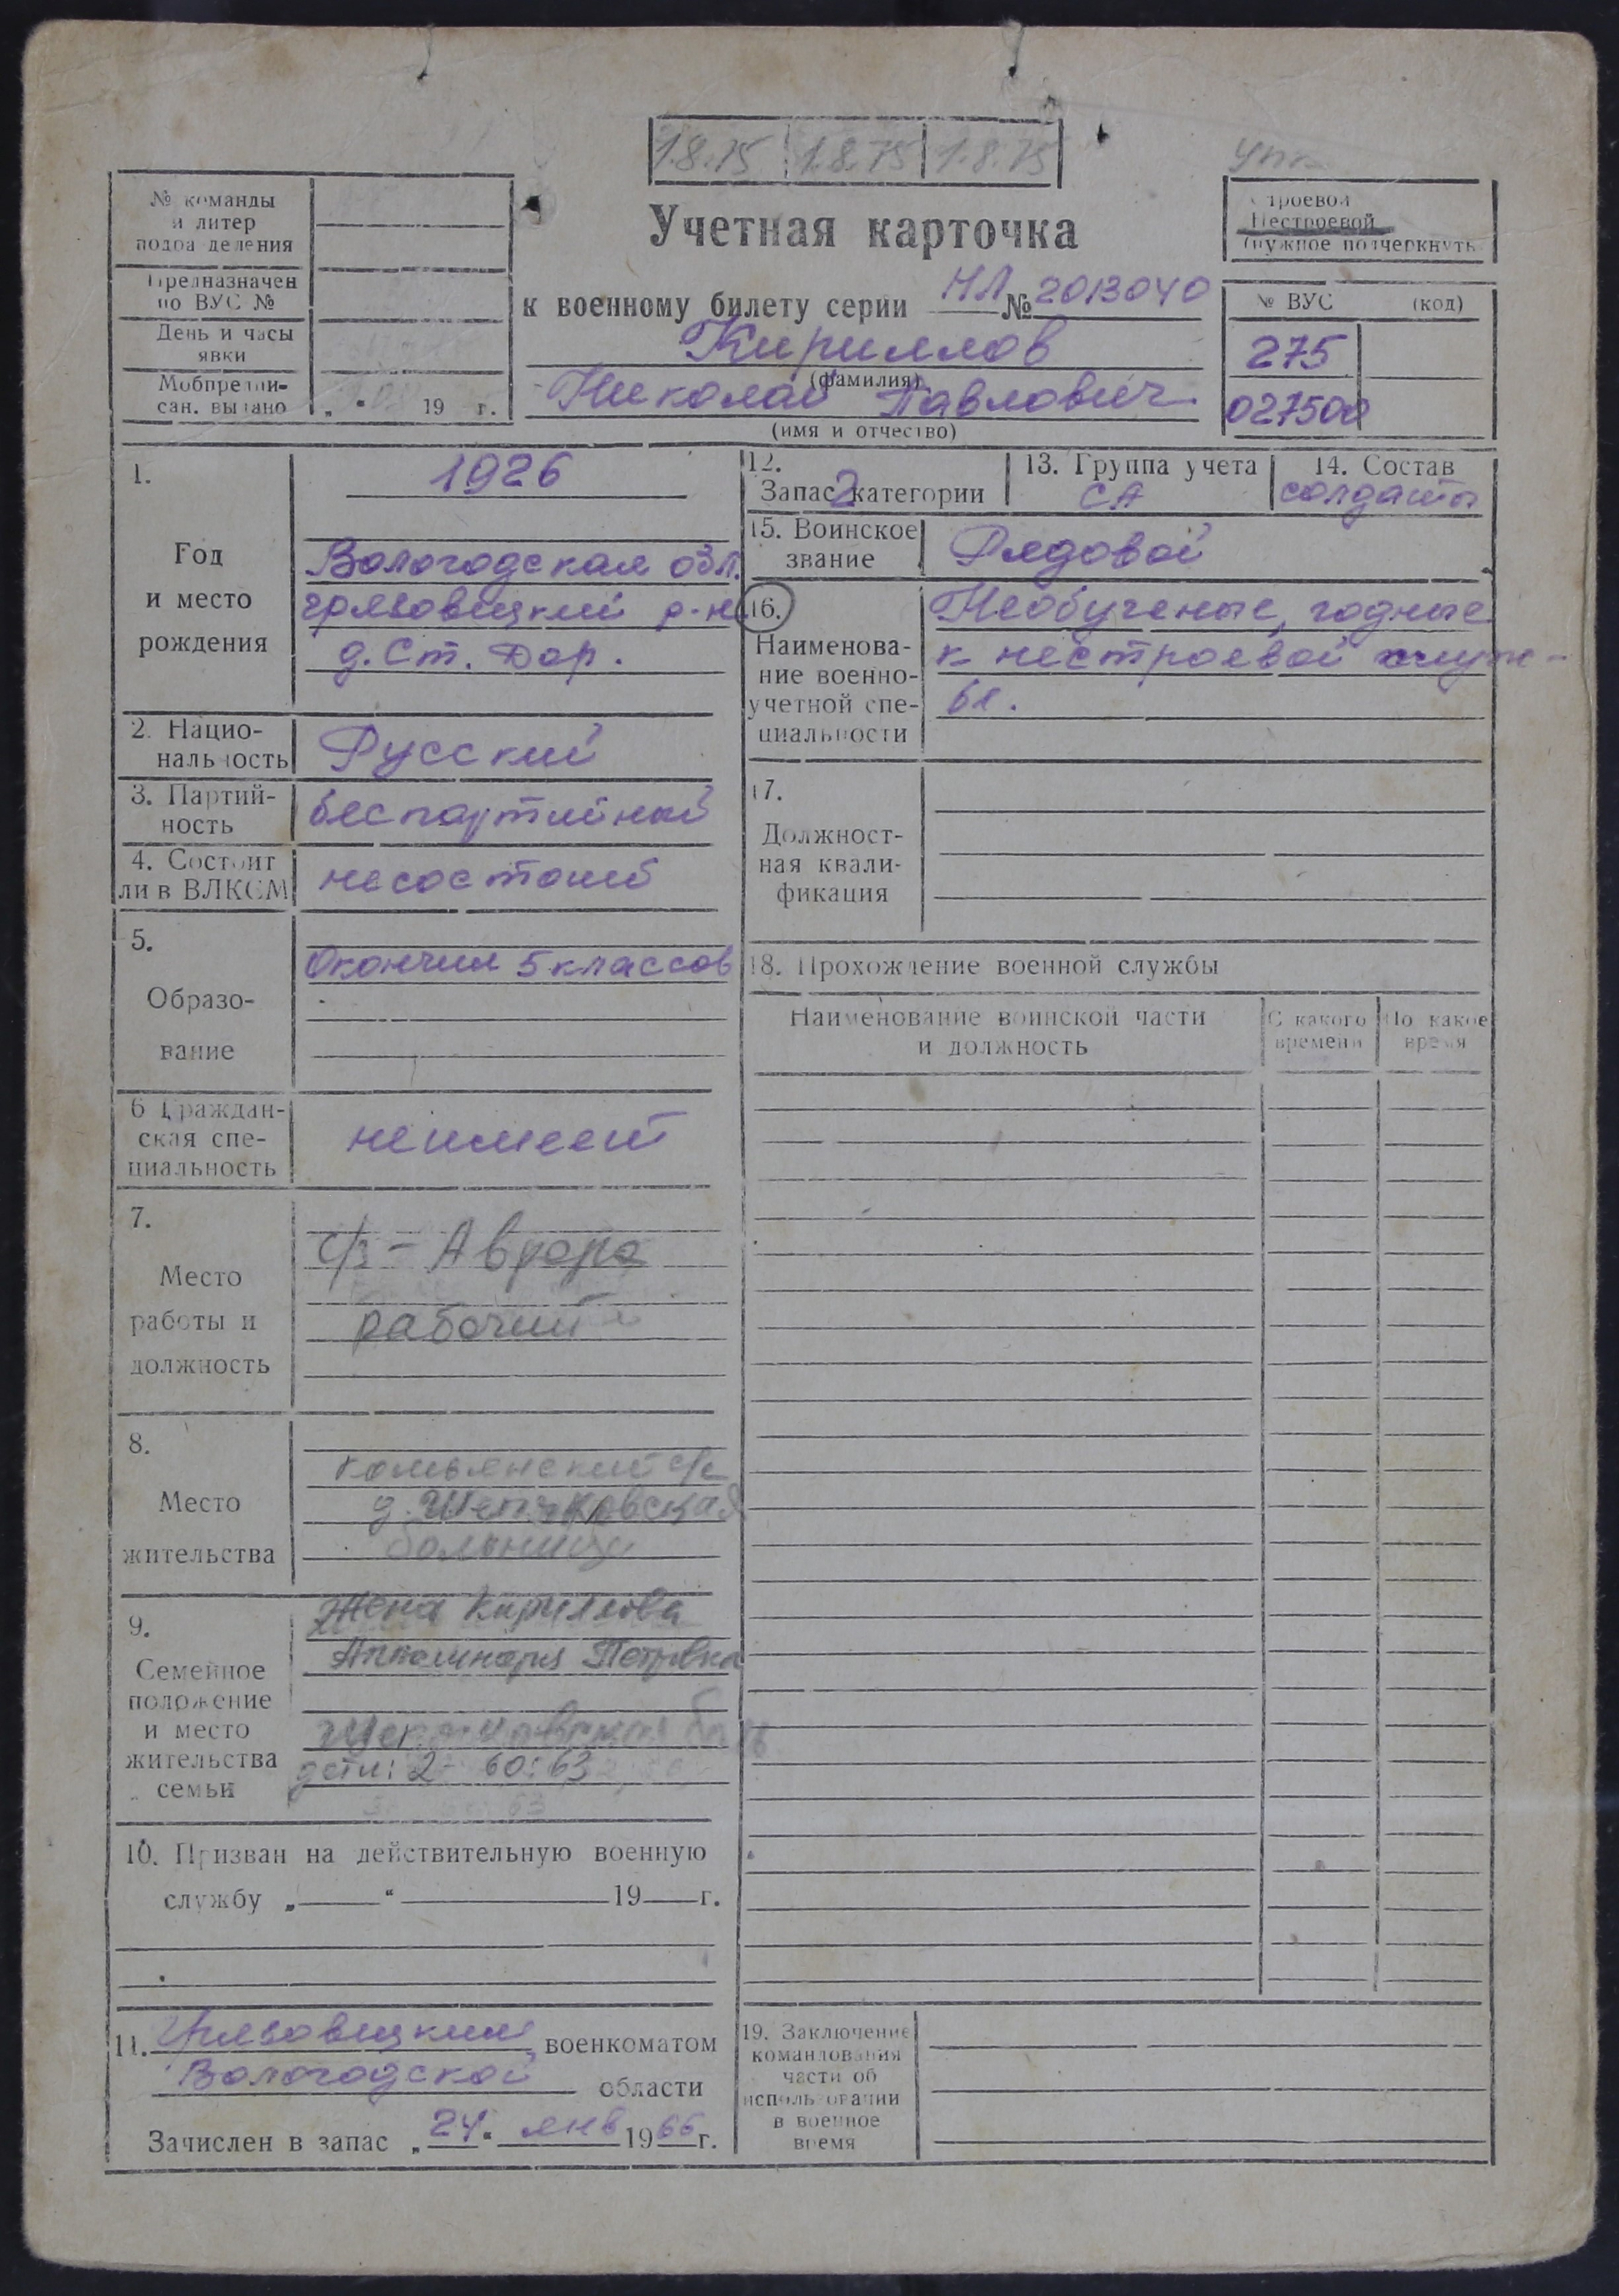 1.8.75 1.8.75 1.8.75
№ команды
и литер
подразделения
Предназначен
по ВУС №
День и часы
явки
Мобпредпи-
сан. выдано „ “ 19 г.
Учетная карточка
к военному билету серии НЛ № 2013040
Кириллов
(фамилия)
Николай Павлович
(имя и отчество)
Строевой
Нестроевой
(нужное подчеркнуть
№ ВУС (код)
275
027500
1.
Год
и место
рождения
1926
Вологодская обл.
грязовецкий р-н
д. Ст. Дор.
2. Нацио-
нальность
Русский
3. Партий-
ность
беспартийный
4. Состоит
ли в ВЛКСМ
несостоит
5.
Образо-
вание
Окончил 5 классов
6 Граждан-
ская спе-
циальность
неимеет
7.
Место
работы и
должность
с/з - Аврора
рабочий
8.
Место
жительства
с/с
д.
больница
9.
Семейное
положение
и место
жительства
семьи
Жена Кириллова
Апполинария Петровна
дети: 2 - 60: 63
10. Призван на действительную военную
службу „ “ 19 г.
11. Грязовецким военкоматом
Вологодской области
Зачислен в запас „24“ янв 1966 г.
12.
Запас 2 категории
13. Группа учета
СА
14. Состав
солдаты
15. Воинское
звание
Рядовой
16.
Наименова-
ние военно-
учетной спе-
циальности
Необученые, годные
к нестроевой служ-
бе.
17.
Должност-
ная квали-
фикация
18. Прохождение военной службы
Наименование воинской части
и должность
С какого
времени
По какое
время
19. Заключение
командования
части об
использовании
в военное
время